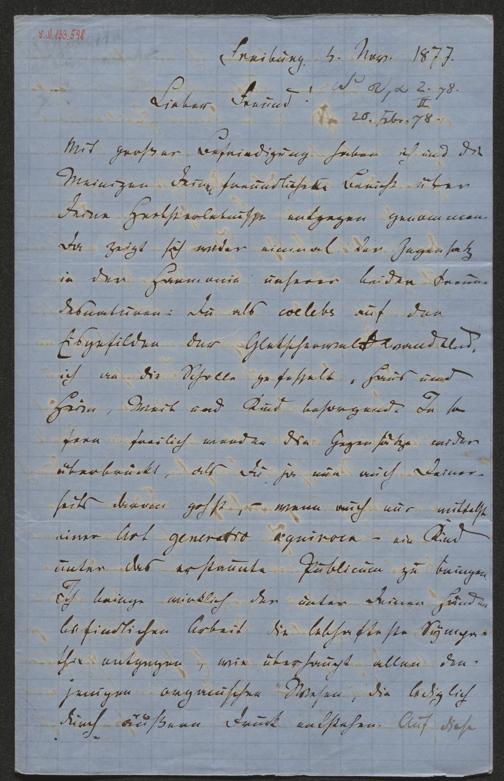 Freiburg 4. Nov. 1877.
2. 78.
II
20. 78.
Lieber Freund!
Mit großer Befriedigung haben ich und die
Meinigen Deine freundlichste Bericht über
Deine Herbsterlebnisse entgegen genommen.
Da zeigt sich wieder einmal der Gegensatz
in der Harmonie unserer beiden Freun-
desnaturen: Du als coelebs auf den
Eisgefilden der Gletscherwelt wandelnd,
ich an die Scholle gefesselt, Haus und
Weib und Kind besorgend. In so
fern freilich werden die Gegensätze wieder
überbrückt, als Du ja nun auch Deiner-
seits daran gehst – wenn auch nur mittelst
einer Art generatio aequivoca – ein Kind
unter das erstaunte Publicum zu bringen
Ich bringe wirklich der unter Deinen Händen
befindlichen Arbeit die lebhafteste Sympa-
thie entgegen, wie überhaupt allen den-
jenigen organischen Wesen, die lediglich
durch äußern Druck entstehen. Auf diese